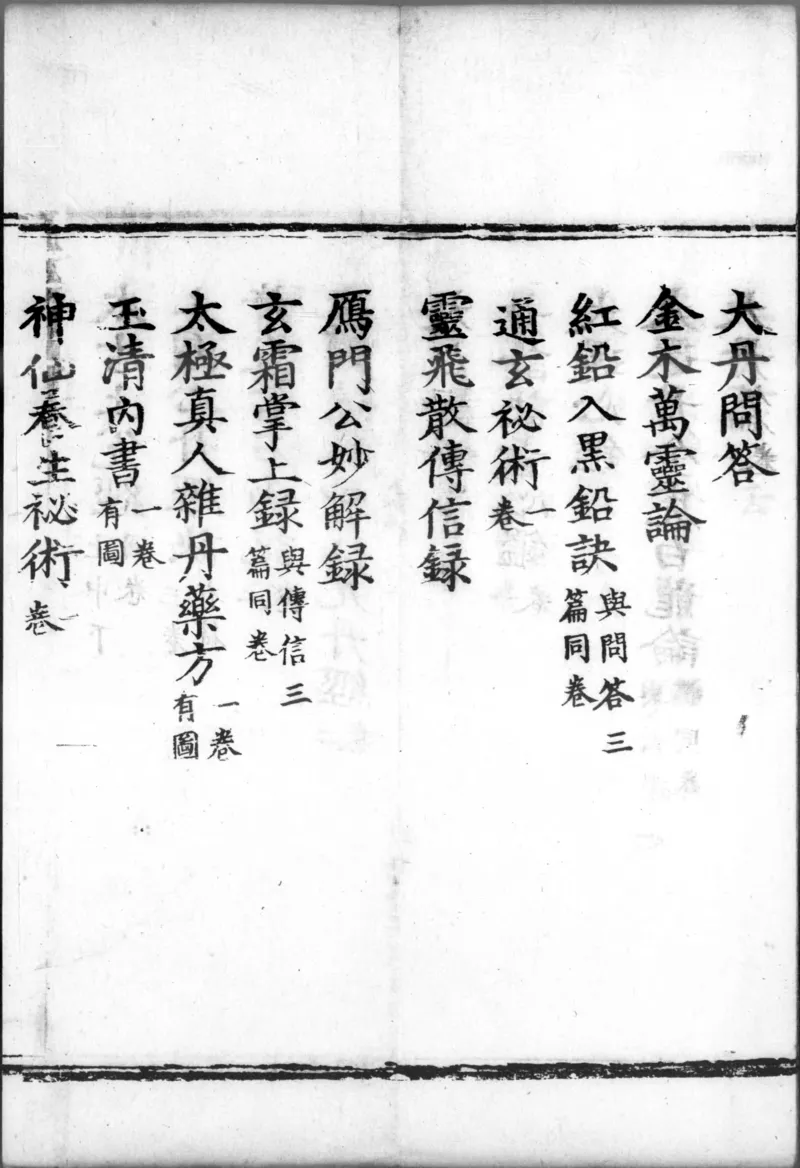 大丹問答
金木萬靈論
紅鉛入黑鉛訣 與問答三篇同卷
通玄祕術 一卷
靈飛散傳信録
鴈門公妙解録
玄霜掌上録 與傳信三篇同卷
太極真人雜丹藥方 一卷有圖
玉清內書 一卷有圖
神仙養生祕術 一卷